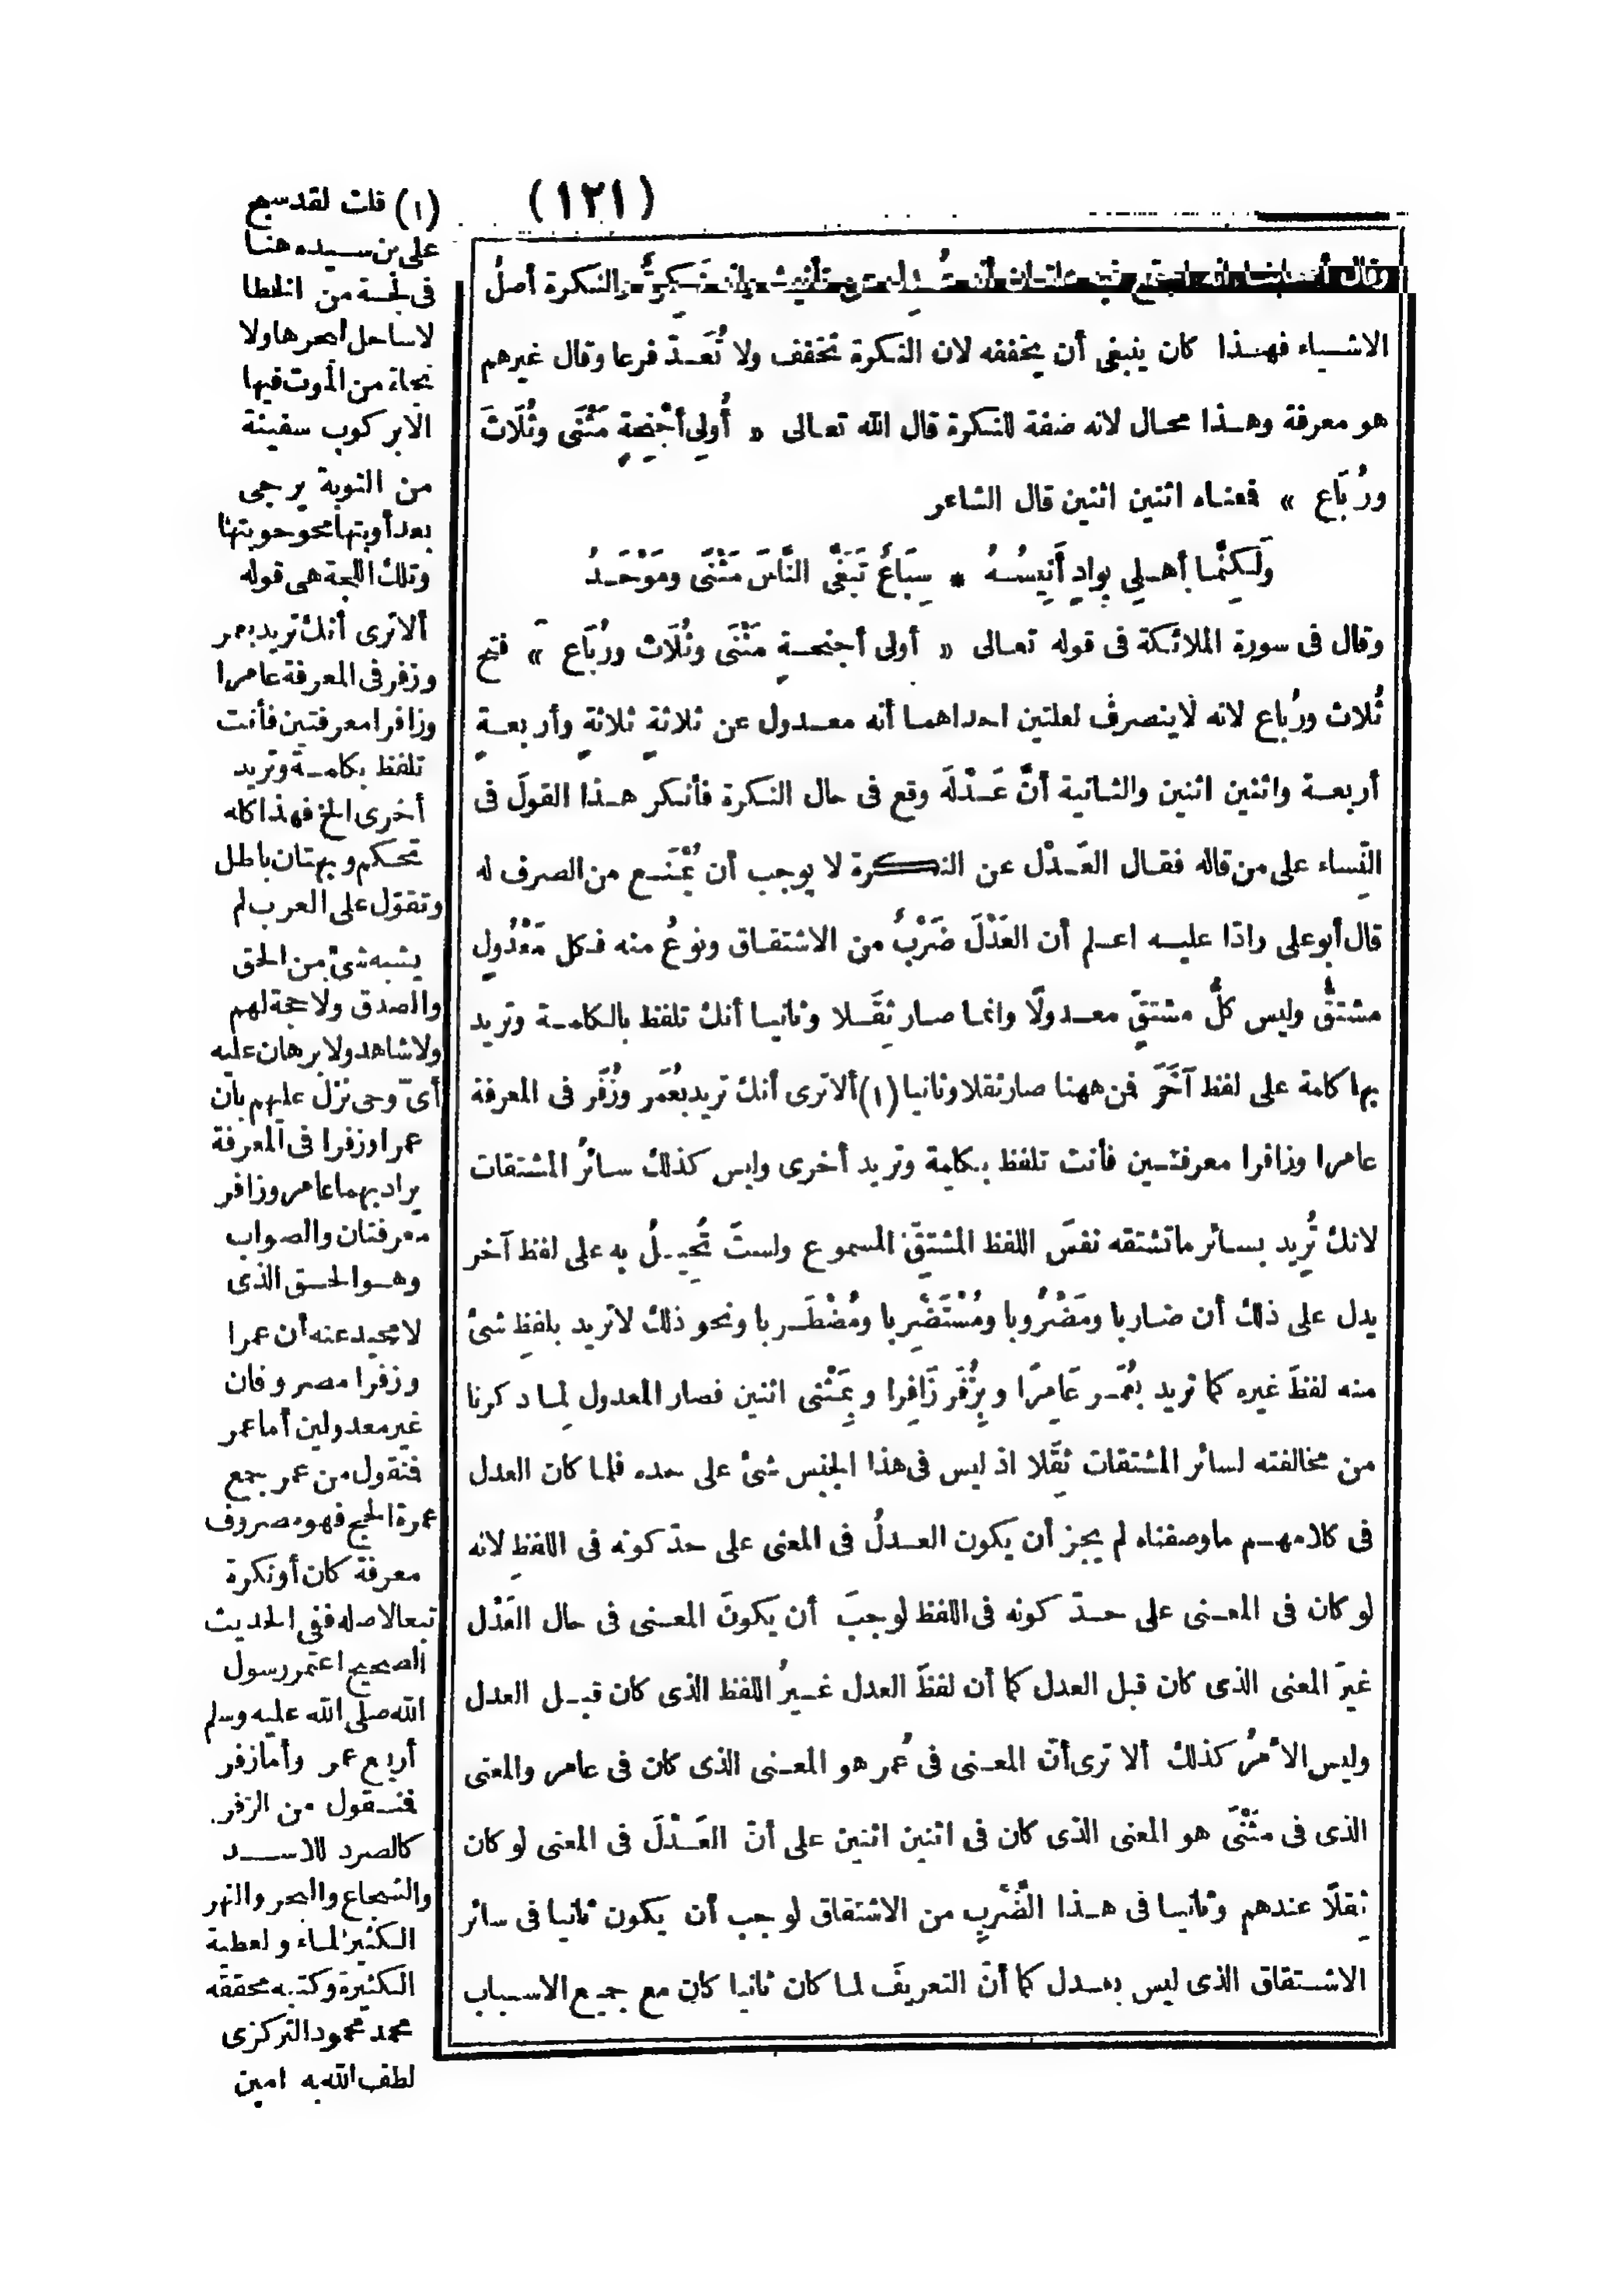 (١٢١)
وقال أصحابنا انه اجتمع فيه علتان أنه عُدِل عن تأنيث وانه نَكِرَةٌ والنكرة أصلُ
الاشياء فهذا كان ينبغى أن يخففه لان النكرة تخفف ولا تُعَدّ فرعا وقال غيرهم
هو معرفة وهذا محال لانه صفة للنكرة قال الله تعالى « أُولِى أَجْنِحةٍ مَثْنَى وثُلَاثَ
ورُبَاع » فمعناه اثنين اثنين قال الشاعر
وَلَكِنَّما أهلِى بِوادٍ أَنِيسُهُ * سِبَاعٌ تَبَغَّى النَّاسَ مَثْنَى ومَوْحَدُ
وقال فى سورة الملائكة فى قوله تعالى « أولى أجنحةٍ مَثْنَى وثُلَاث ورُبَاع » فتح
ثُلاث ورُباع لانه لاينصرف لعلتين احداهما أنه معدول عن ثلاثةٍ ثلاثةٍ وأربعةٍ
أربعة واثنين اثنين والثانية أنَّ عَدْلَه وقع فى حال النكرة فأنكر هذا القولَ فى
النِّساء على من قاله فقال العَدْل عن النكرة لا يوجب أن يُمْنَع من الصرف له
قال أبوعلى رادّا عليه اعلم أن العَدْلَ ضَرْبٌ من الاشتقاق ونوعٌ منه فكل مَعْدُولٍ
مشتقٌّ وليس كلُّ مشتقٍّ معدولًا وانما صار ثِقَلا وثانيا أنك تلفظ بالكلمة وتريد
بها كلمة على لفظ آخَرَ فمن ههنا صار ثقلا وثانيا (١) ألاترى أنك تريد بعُمَر وزُفَر فى المعرفة
عامرا وزافرا معرفتين فأنت تلفظ بكلمة وتريد أخرى وليس كذلك سائرُ المشتقات
لانك تُرِيد بسائر ماتشتقه نفسَ اللفظ المشتقِّ المسموع ولستَ تُحِيلُ به على لفظ آخر
يدل على ذلك أن ضاربا ومَضْرُوبا ومُسْتَضْرِبا ومُضْطَرِبا ونحو ذلك لاتريد بلفظِ شىْ
منه لفظَ غيره كما تريد بعُمَر عَامِرًا وبِزُفَر زَافِرا وبِمَثْنى اثنين فصار المعدول لِما ذكرنا
من مخالفته لسائر المشتقات ثِقَلا اذ ليس فى هذا الجنس شىْ على حده فلما كان العدل
فى كلامهم ماوصفناه لم يجز أن يكون العدلُ فى المعنى على حدّ كونه فى اللفظِ لانه
لو كان فى المعنى على حدّ كونه فى اللفظ لوجبَ أن يكونَ المعنى فى حال العَدْل
غيرَ المعنى الذى كان قبل العدل كما أن لفظَ العدل غيرُ اللفظ الذى كان قبل العدل
وليس الأمرُ كذلك ألا ترى أنّ المعنى فى عُمر هو المعنى الذى كان فى عامر والمعنى
الذى فى مَثْنَى هو المعنى الذى كان فى اثنين اثنين على أنّ العَدْلَ فى المعنى لو كان
ثِقَلًا عندهم وثانيا فى هذا الضَّرْبِ من الاشتقاق لوجب أن يكون ثانيا فى سائر
الاشتقاق الذى ليس بعدل كما أنّ التعريفَ لما كان ثانيا كان مع جميع الاسباب
(١) قلت لقد سبح
على بن سيده هنا
فى لجة من الخطا
لاساحل لبحرها ولا
نجاة من الموت فيها
الابركوب سفينة
من التوبة يرجى
بعد أوبتها محو حوبتها
وتلك اللجة هى قوله
ألاترى أنك تريد بعمر
وزفر فى المعرفة عامرا
وزافرا معرفتين فأنت
تلفظ بكلمة وتريد
أخرى الخ فهذا كله
تحكم وبهتان باطل
وتقوّل على العرب لم
يشبه شئ من الحق
والصدق ولا حجة لهم
ولا شاهد ولا برهان عليه
أىّ وحى نزل عليهم بأن
عمرا وزفرا فى المعرفة
يراد بهما عامر وزافر
معرفتان والصواب
وهو الحق الذى
لا محيد عنه أن عمرا
وزفرا مصروفان
غير معدولين أما عمر
فنقول من عمر جمع
عمرة الحج فهو مصروف
معرفة كان أو نكرة
تبعا لاصله ففى الحديث
الصحيح اعتمر رسول
الله صلى الله عليه وسلم
أربع عمر وأمازفر
فنقول من الزفر
كالصرد للاسد
والشجاع والبحر والنهر
الكثير الماء ولعطية
الكثيرة وكتبه محققه
محمد محمود التركزى
لطف الله به امين